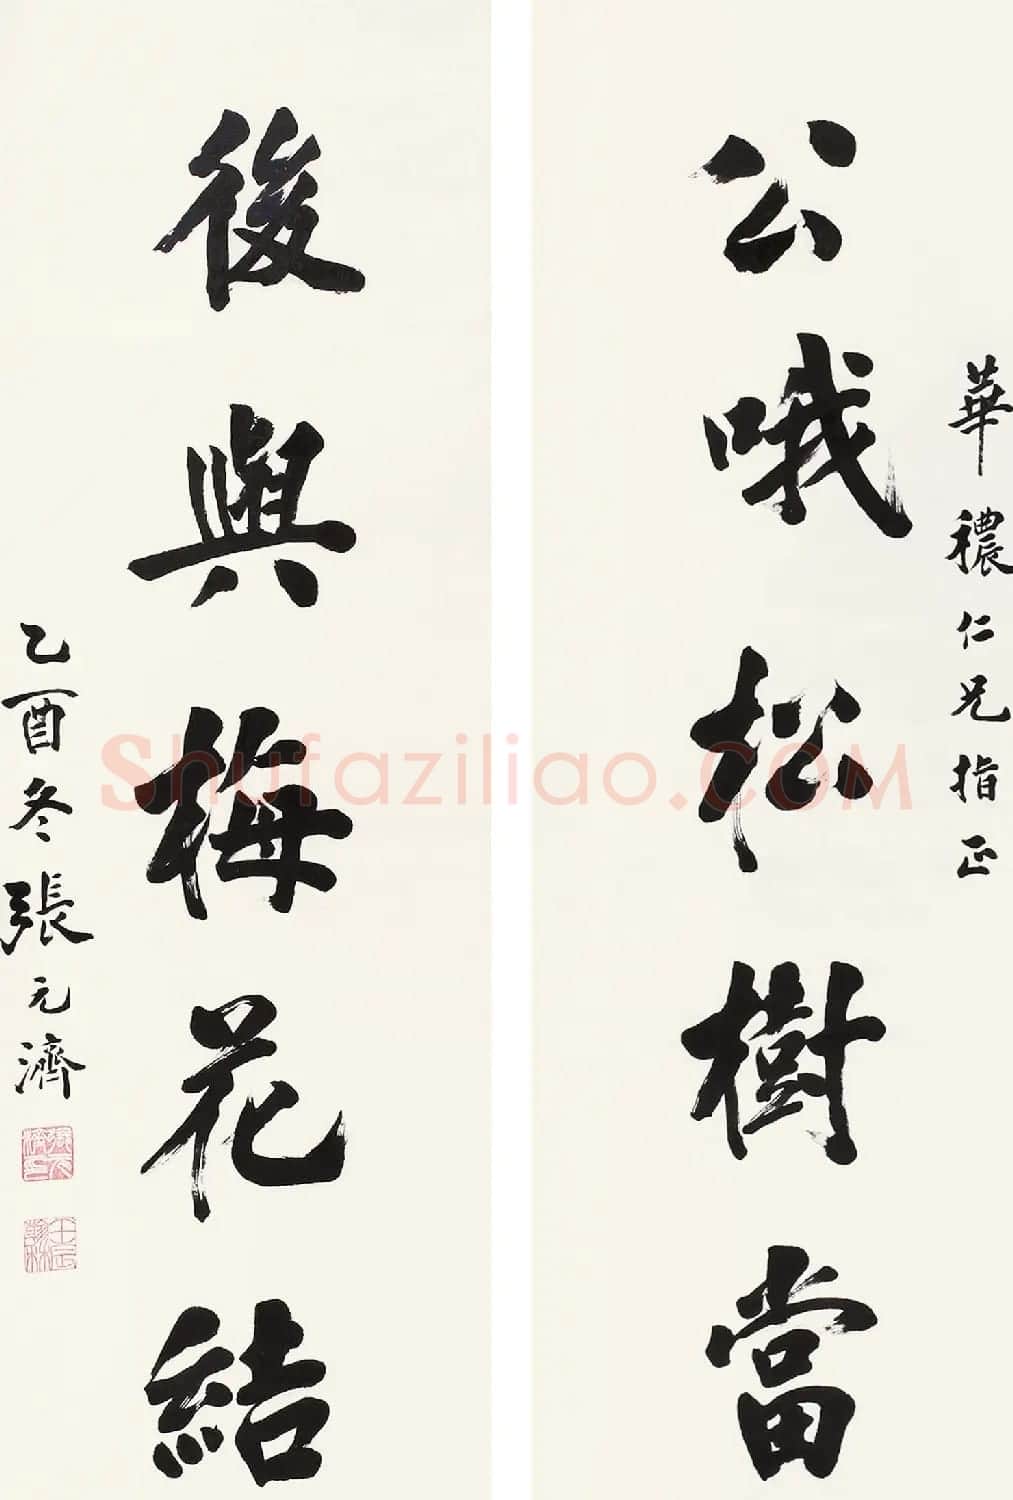 華穠仁兄指正
公哦松樹當
後與梅花結
乙酉冬張元濟
張元濟印
壬辰翰林
Shufaziliao.COM